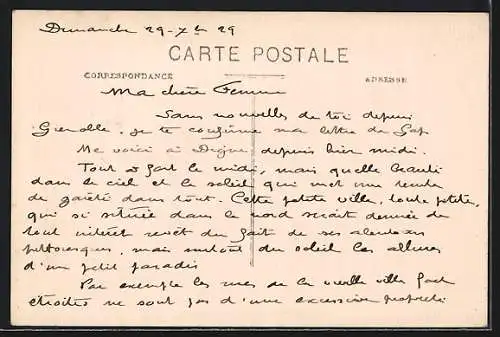 Dimanche 29-7bre 29
CARTE POSTALE
CORRESPONDANCE
ADRESSE
Ma chère Femme
Sans nouvelles de toi depuis
Grenoble, je te confirme ma lettre de Gap.
Me voici à Digne depuis hier midi.
Tout à fait le midi, mais quelle beauté
dans le ciel et le soleil qui met une
de gaieté dans tout. Cette petite ville, toute petite,
qui si située dans le nord serait dénuée de
tout intérêt revêt du fait de ses alentours
pittoresques, mais surtout du soleil les allures
d'un petit paradis
Par exemple les rues de la vieille ville fort
étroites ne sont pas d'une excessive propreté